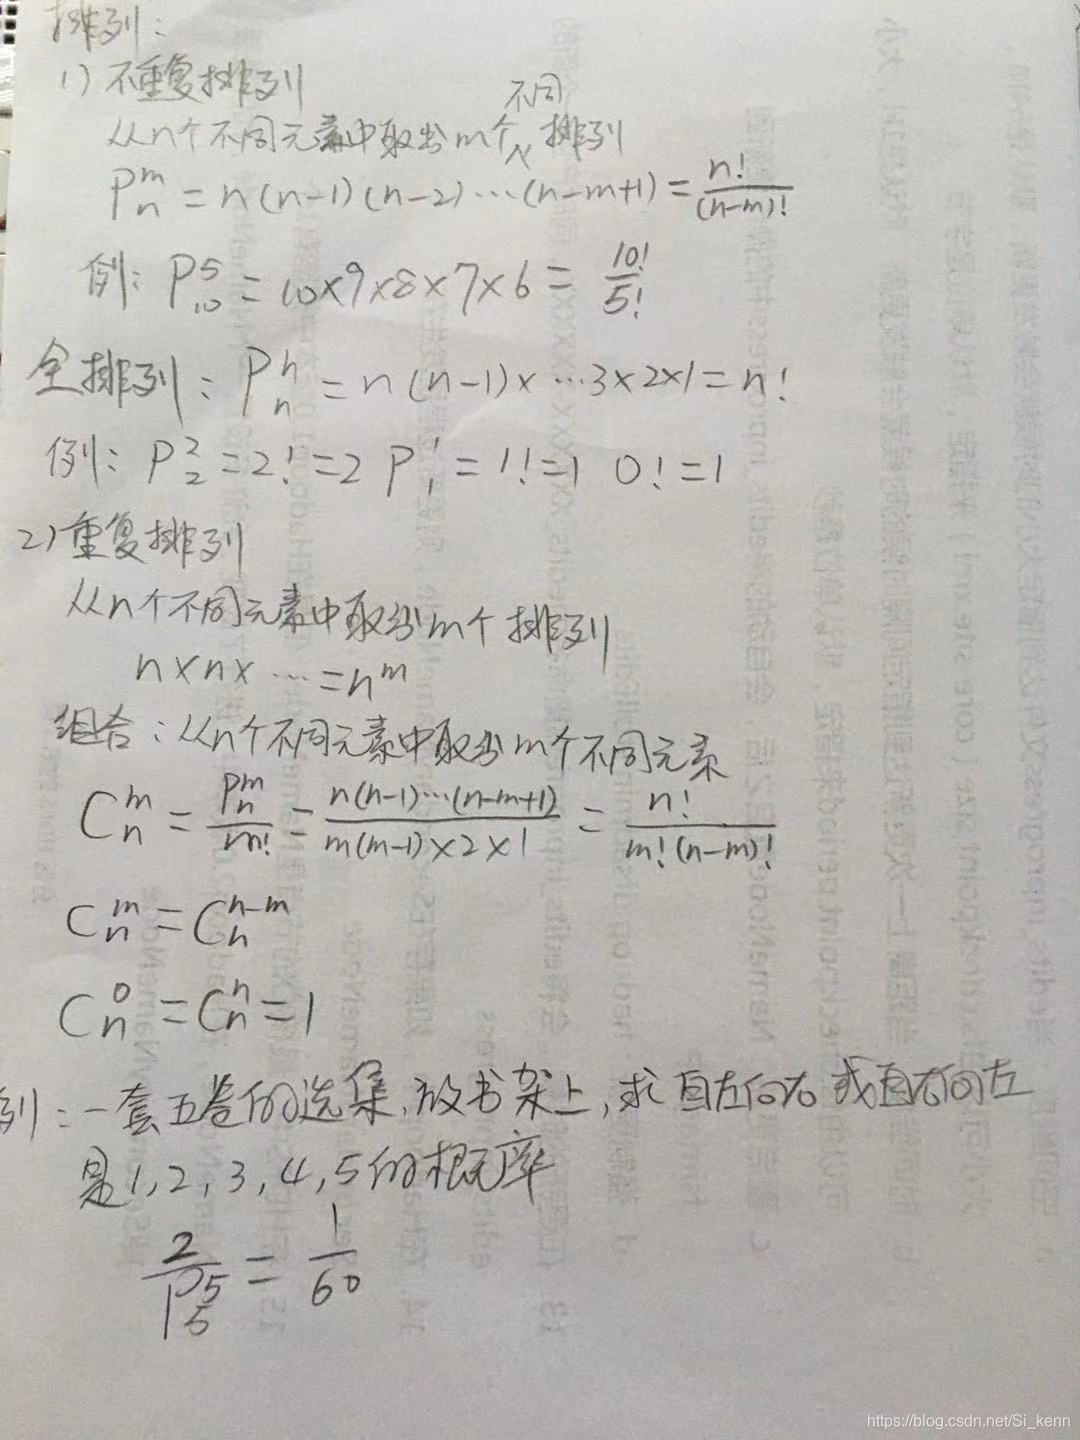 排列：
1) 不重复排列
从n个不同元素中取出m个不同排列
P_n^m = n(n-1)(n-2)…(n-m+1) = n!/(n-m)!
例: P_10^5 = 10×9×8×7×6 = 10!/5!
全排列：P_n^n = n(n-1)×…3×2×1 = n!
例: P_2^2 = 2! = 2 P_1^1 = 1! = 1 0! = 1
2) 重复排列
从n个不同元素中取出m个排列
n×n×…=n^m
组合：从n个不同元素中取出m个不同元素
C_n^m = P_n^m/m! = n(n-1)…(n-m+1)/m(m-1)×2×1 = n!/m!(n-m)!
C_n^m = C_n^{n-m}
C_n^0 = C_n^n = 1
例：一套五卷的选集,放书架上,求自左向右或自右向左
是1,2,3,4,5的概率
2/P_5^5 = 1/60
https://blog.csdn.net/Si_kenn